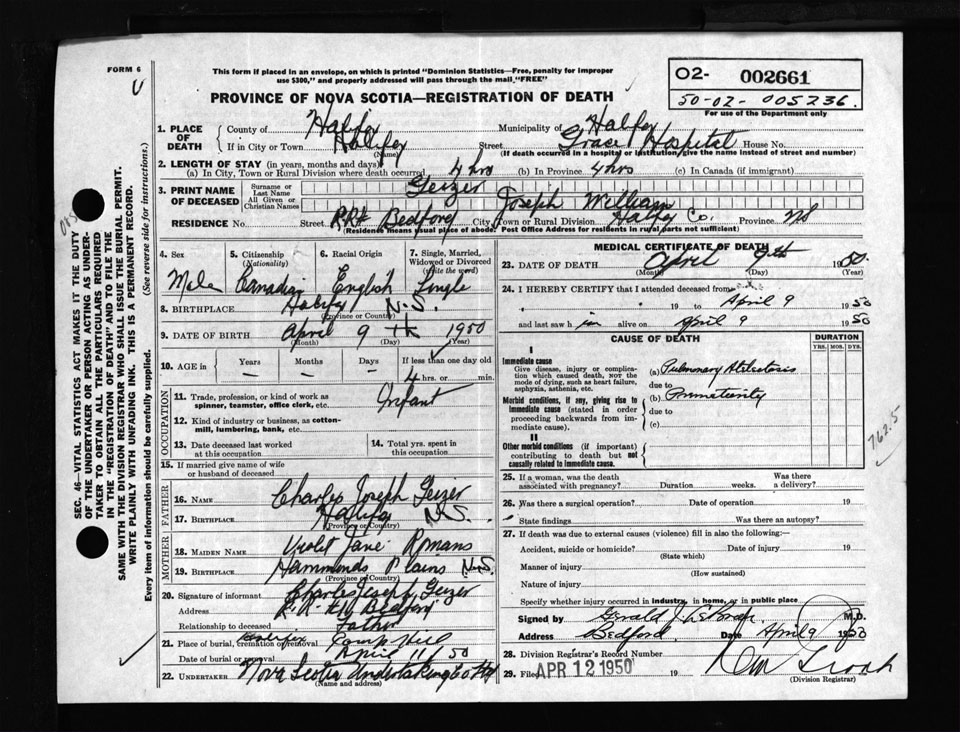 FORM 6
This form if placed in an envelope, on which is printed "Dominion Statistics—Free, penalty for improper
use $300," and properly addressed will pass through the mail "FREE"
02- 002661
50-02- 005236.
For use of the Department only
PROVINCE OF NOVA SCOTIA—REGISTRATION OF DEATH
1. PLACE OF DEATH
County of Halifax Municipality of Halifax
If in City or Town Halifax Street Grace Hospital House No.
(Name) (If death occurred in a hospital or institution, give the name instead of street and number)
2. LENGTH OF STAY (in years, months and days)
(a) In City, Town or Rural Division where death occurred 4 hrs (b) In Province 4 hrs (c) In Canada (if immigrant)
3. PRINT NAME OF DECEASED
Surname or Last Name Geizer
All Given or Christian Names Joseph William
RESIDENCE No. Street R.R#1 Bedford City, Town or Rural Division Halifax Co. Province NS
(Residence means usual place of abode. Post Office Address for residents in rural parts not sufficient)
4. Sex 5. Citizenship (Nationality) 6. Racial Origin 7. Single, Married, Widowed or Divorced (write the word)
Male Canadian English Single
8. BIRTHPLACE Halifax N.S.
(Province or Country)
9. DATE OF BIRTH April 9 th 1950
(Month) (Day) (Year)
10. AGE in Years Months Days If less than one day old
— — — 4 hrs. or min.
OCCUPATION
11. Trade, profession, or kind of work as spinner, teamster, office clerk, etc. Infant
12. Kind of industry or business, as cotton-mill, lumbering, bank, etc.
13. Date deceased last worked at this occupation 14. Total yrs. spent in this occupation
15. If married give name of wife or husband of deceased
FATHER
16. NAME Charles Joseph Geizer
17. BIRTHPLACE Halifax N.S.
(Province or Country)
MOTHER
18. MAIDEN NAME Violet Jane Romans
19. BIRTHPLACE Hammonds Plains N.S.
(Province or Country)
20. Signature of informant Charles Joseph Geizer
Address R.R #1 Bedford
Relationship to deceased Father
21. Place of burial, cremation or removal Halifax Camp Hill
Date of burial or removal April 11/50
22. UNDERTAKER Nova Scotia Undertaking Co
(Name and address)
MEDICAL CERTIFICATE OF DEATH
23. DATE OF DEATH April 9th 1950
(Month) (Day) (Year)
24. I HEREBY CERTIFY that I attended deceased from
19 to April 9 1950
and last saw him alive on April 9 1950
CAUSE OF DEATH DURATION
YRS. MOS. DYS.
I
Immediate cause
Give disease, injury or complication which caused death, NOT the mode of dying, such as heart failure, asphyxia, asthenia, etc.
(a) Pulmonary Atelectasis
due to
Morbid conditions, if any, giving rise to immediate cause (stated in order proceeding backwards from immediate cause).
(b) Prematurity
due to
(c)
II
Other morbid conditions (if important) contributing to death but not causally related to immediate cause.
762.5
25. If a woman, was the death associated with pregnancy? Duration weeks. Was there a delivery?
26. Was there a surgical operation? Date of operation 19
State findings Was there an autopsy?
27. If death was due to external causes (violence) fill in also the following:
Accident, suicide or homicide? Date of injury 19
(State which)
Manner of injury
(How sustained)
Nature of injury
Specify whether injury occurred in industry, in home, or in public place
Signed by Gerald J. M.D.
Address Bedford Date April 9 1950
28. Division Registrar's Record Number
29. Filed APR 12 1950 19
(Division Registrar)
SEC. 46—VITAL STATISTICS ACT MAKES IT THE DUTY
OF THE UNDERTAKER OR PERSON ACTING AS UNDER-
TAKER TO OBTAIN ALL THE PARTICULARS REQUIRED
IN THE "REGISTRATION OF DEATH" AND TO FILE THE
SAME WITH THE DIVISION REGISTRAR WHO SHALL ISSUE THE BURIAL PERMIT.
WRITE PLAINLY WITH UNFADING INK. THIS IS A PERMANENT RECORD.
Every item of information should be carefully supplied. (See reverse side for instructions.)